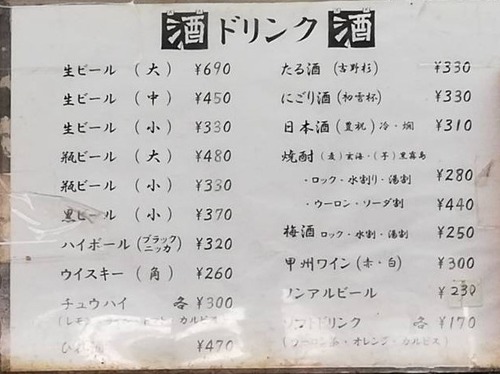 酒 ドリンク 酒
生ビール (大) ¥690
生ビール (中) ¥450
生ビール (小) ¥330
瓶ビール (大) ¥480
瓶ビール (小) ¥330
黒ビール (小) ¥370
ハイボール (ブラックニッカ) ¥320
ウイスキー (角) ¥260
チュウハイ 各 ¥300
カルピス)
¥470
たる酒 (吉野杉) ¥330
にごり酒 (初雪杯) ¥330
日本酒 (豊祝) 冷・燗 ¥310
焼酎 (麦)玄海・(芋)黒霧島
・ロック・水割り・湯割 ¥280
・ウーロン・ソーダ割 ¥440
梅酒 ロック・水割・湯割 ¥250
甲州ワイン (赤・白) ¥300
ノンアルビール ¥230
ソフトドリンク 各 ¥170
(ウーロン茶・オレンジ・カルピス)